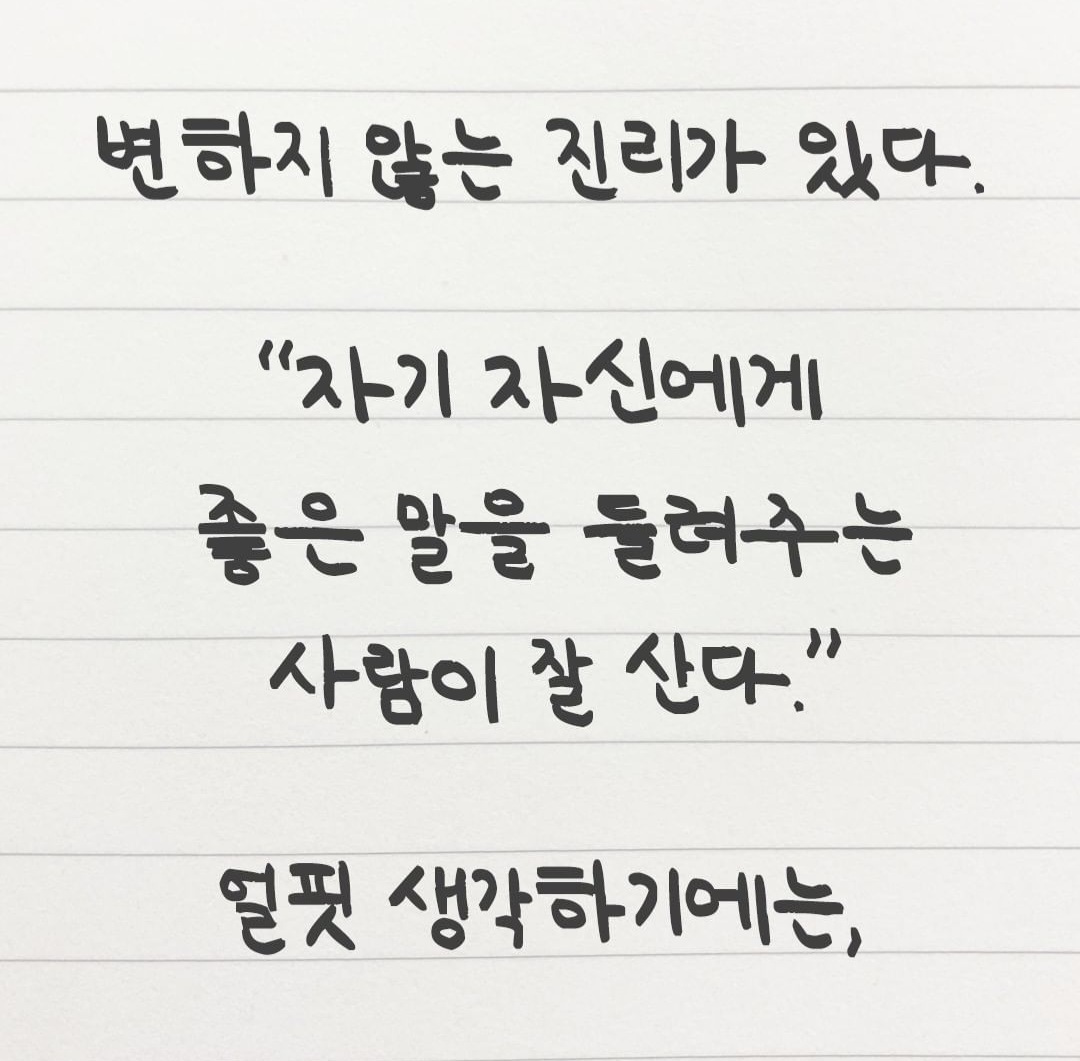 변하지 않는 진리가 있다.
“자기 자신에게
좋은 말을 들려주는
사람이 잘 산다.”
얼핏 생각하기에는,